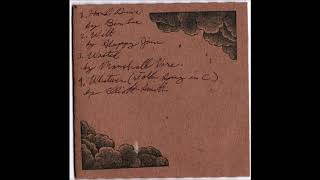 1. Hard Drive
by
2. Wilt
by Happy
3. Wasted
by Marshall Vore
4. Whatever (Folk Song in C)
by Elliott Smith